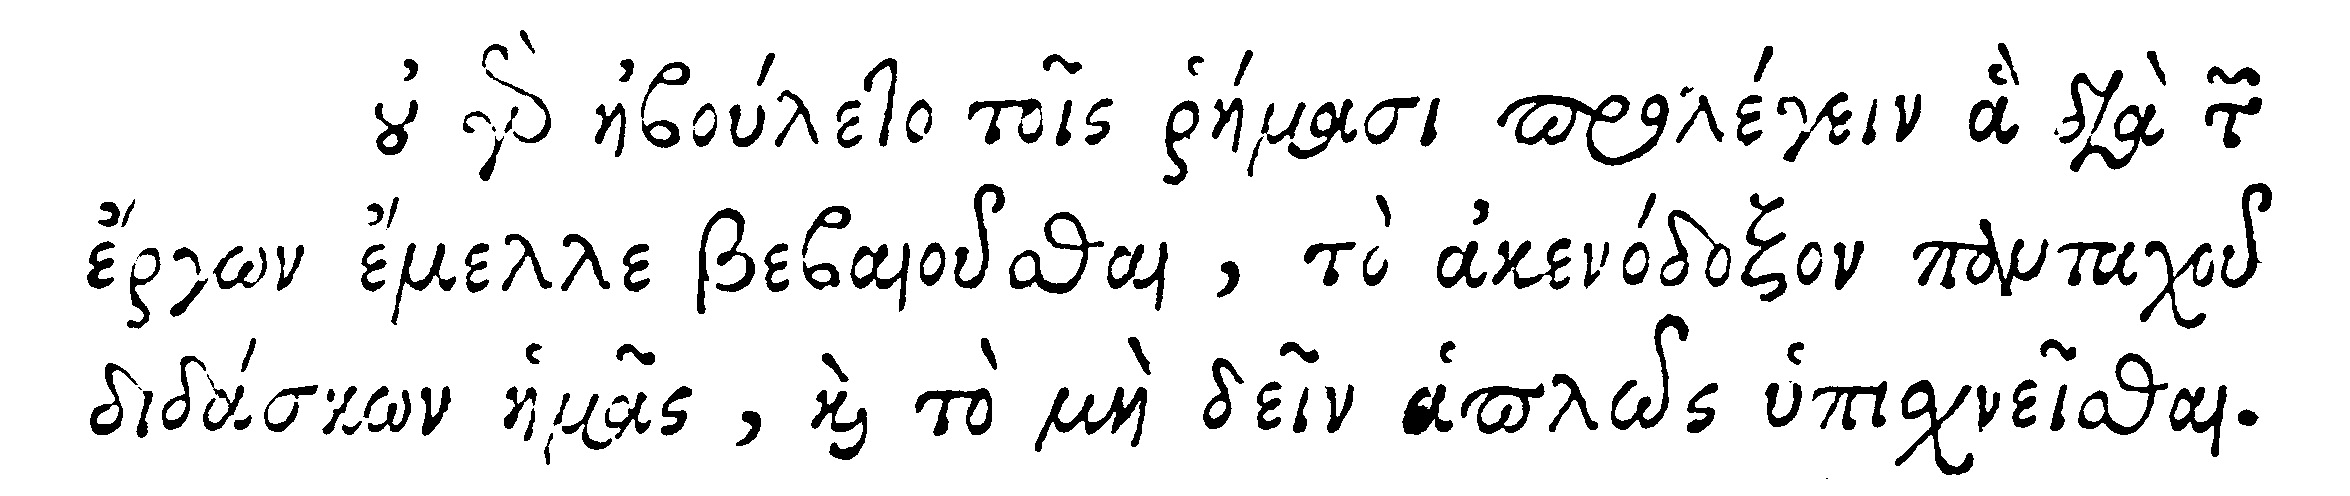 οὐ γὰρ ἠβούλετο τοῖς ῥήμασι προλέγειν ἃ διὰ τῶν
ἔργων ἔμελλε βεβαιοῦσθαι, τὸ ἀκενόδοξον πανταχοῦ
διδάσκων ἡμᾶς, καὶ τὸ μὴ δεῖν ἁπλῶς ὑπισχνεῖσθαι.